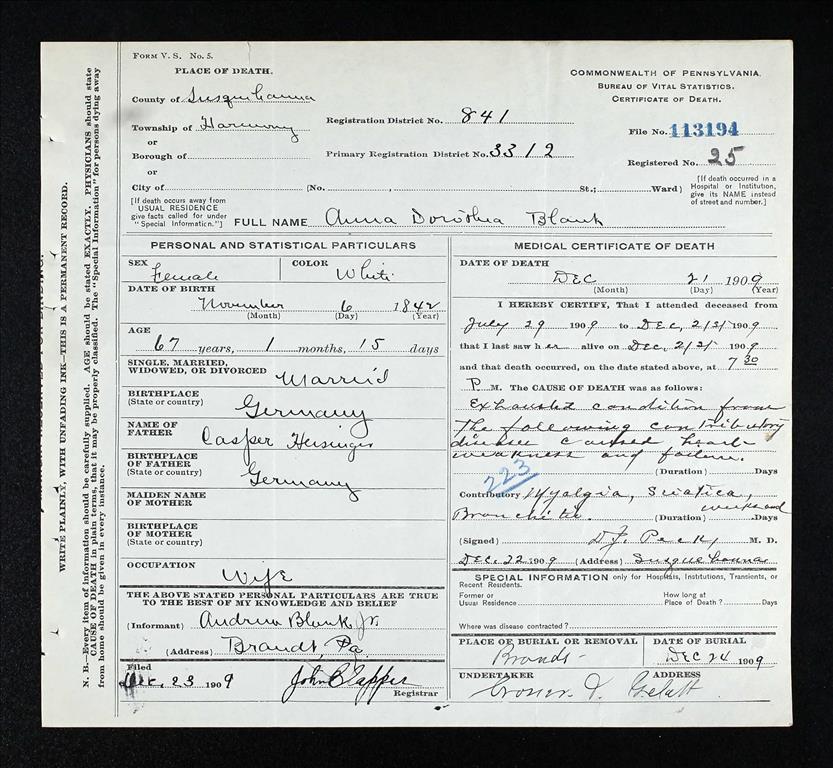 FORM V. S. No. 5.
PLACE OF DEATH.
County of Susquehanna
Township of Harmony
or
Borough of
or
City of (No. , St.; Ward)
Registration District No. 841
Primary Registration District No. 3312
COMMONWEALTH OF PENNSYLVANIA.
BUREAU OF VITAL STATISTICS.
CERTIFICATE OF DEATH.
File No. 113194
Registered No. 25
[If death occurred in a
Hospital or Institution,
give its NAME instead
of street and number.]
[If death occurs away from
USUAL RESIDENCE
give facts called for under
"Special Information."]
FULL NAME Anna Dorothea Blank
PERSONAL AND STATISTICAL PARTICULARS
SEX Female
COLOR White
DATE OF BIRTH
November 6 1842
(Month) (Day) (Year)
AGE
67 years, 1 months, 15 days
SINGLE, MARRIED,
WIDOWED, OR DIVORCED Married
BIRTHPLACE
(State or country) Germany
NAME OF
FATHER Casper Heisinger
BIRTHPLACE
OF FATHER
(State or country) Germany
MAIDEN NAME
OF MOTHER
BIRTHPLACE
OF MOTHER
(State or country)
OCCUPATION
Wife
THE ABOVE STATED PERSONAL PARTICULARS ARE TRUE
TO THE BEST OF MY KNOWLEDGE AND BELIEF
(Informant) Andrew Blank Jr.
(Address) Brandt, Pa
Filed
Dec. 23 1909 John Clapper
Registrar
MEDICAL CERTIFICATE OF DEATH
DATE OF DEATH
DEC 21 1909
(Month) (Day) (Year)
I HEREBY CERTIFY, That I attended deceased from
July 29 1909 to Dec, 21st 1909
that I last saw her alive on Dec. 21st 1909
and that death occurred, on the date stated above, at 7 30
P. M. The CAUSE OF DEATH was as follows:
Exhausted condition from
The following contributory
disease caused heart
weakness and failure.
(Duration) Days
223
Contributory Myalgia, Sciatica,
Bronchitis. (Duration) Days
(Signed) D.J. Peck, M. D.
Dec. 22 1909 (Address) Susquehanna
SPECIAL INFORMATION only for Hospitals, Institutions, Transients, or
Recent Residents.
Former or
Usual Residence
How long at
Place of Death? Days
Where was disease contracted?
PLACE OF BURIAL OR REMOVAL
Brandt
DATE OF BURIAL
DEC 24 1909
UNDERTAKER
ADDRESS
Gelatt
WRITE PLAINLY, WITH UNFADING INK—THIS IS A PERMANENT RECORD.
N. B.—Every item of information should be carefully supplied. AGE should be stated EXACTLY. PHYSICIANS should state
CAUSE OF DEATH in plain terms, that it may be properly classified. The "Special Information" for persons dying away
from home should be given in every instance.